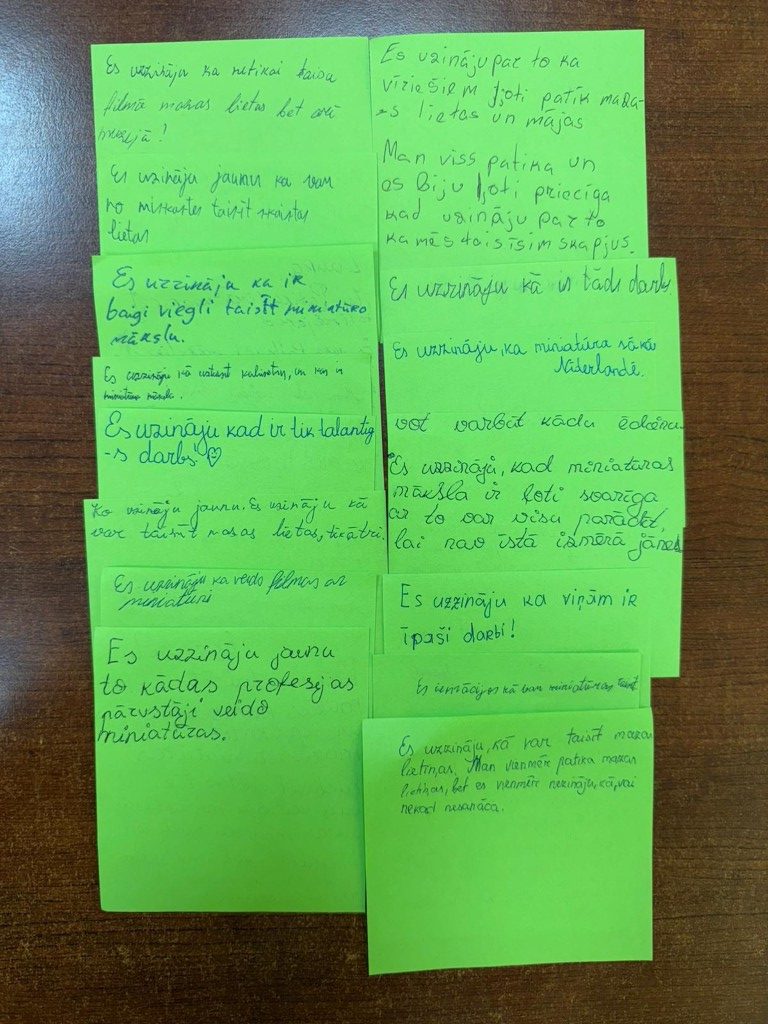 Es uzzināju ka netikai taisa
filmā mazas lietas bet arī
muzejā!
Es uzināju jaunu ka var
no miskastes taisīt skaistas
lietas
Es uzzināju ka ir
baigi viegli taisīt miniatūro
mākslu.
Es uzzināju kā uztaisīt
miniatūra māksla.
Es uzināju kad ir tik talantig
-s darbs! ♡
Ko uzināju jaunu. Es uzināju kā
var taisīt mazas lietas, teātri.
Es uzzināju ka veido filmas ar
miniatūri
Es uzzināju jaunu
to kādas profesijas
pārvstāji veido
miniatūras.
Es uzināju par to ka
vīriešiem ļoti patīk maza-
-s lietas un mājas
Man viss patika un
es biju ļoti priecīga
kad uzināju par to
ka mēs taisīsim skapjus.
Es uzzināju kā ir tāds darbs
Es uzzināju, ka miniatūra sākās
Nīderlandē.
vot varbūt kādu ēdienu
Es uzzināju, kad miniatūras
māksla ir ļoti svarīga
ar to var visu parādīt,
lai nav īstā izmērā jānes
Es uzzināju ka viņām ir
īpaši darbi!
Es iemācījos kā var miniatūras taisīt
Es uzzināju, kā var taisīt mazas
lietiņas. Man vienmēr patika mazas
lietiņas, bet es vienmēr nezināju, kā, vai
nekad nesanāca.